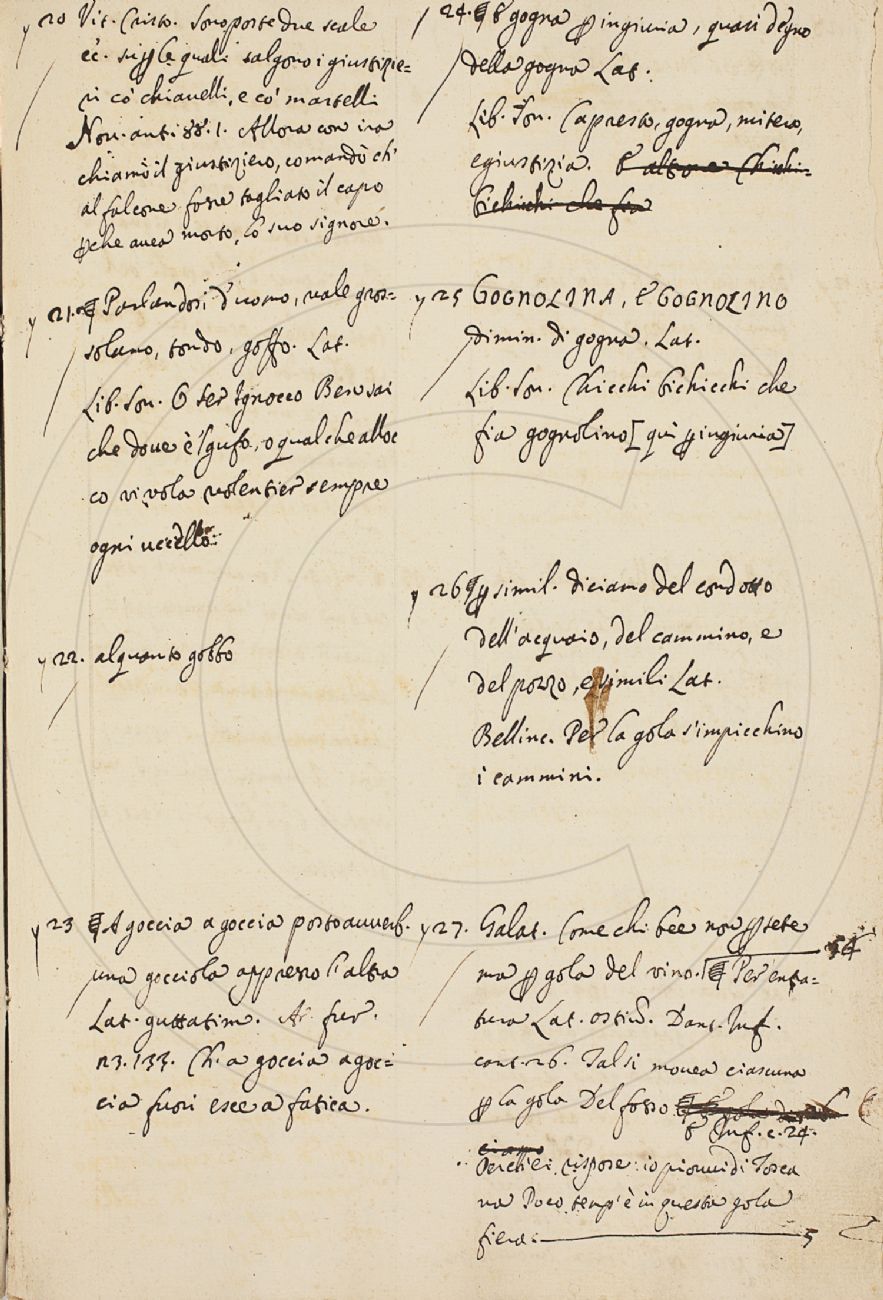 20 Vit. Crist. Sono poste due scale
ec. su p le quali salgono i giustizie=
ri co' chiavelli, e co' martelli
Nov. ant. 88. 1. Allora con ira
chiamò il giustiziero, comandò ch'
al falcone fosse tagliato il capo
pche avea morto, lo suo signore.
21. ¶ Parlandosi d'uomo, vale gros=
solano, tondo, goffo. Lat.
Lib. Son. O ser Ignocco Ben sai
che dove è 'l gufo, o qualche alloc
co vi vola volentier sempre
ogni uccello:
22. alquanto gobbo
23 ¶ A goccia a goccia posto avverb.
una gocciola appresso l'altra
Lat. guttatim. Ar. fur.
23. 133. Ch. a goccia a goc=
cia fuori esce a fatica.
24. ¶ E gogna p ingiuria, quasi degno
della gogna Lat.
Lib. Son. Capresto, gogna, mitera,
e giustizia. E altrove Chichi=
bichichi che fia
25 GOGNOLINA, E GOGNOLINO
dimin. di gogna. Lat.
Lib. Son. Chicchi bichicchi che
fia gognolino [qui p ingiuria]
26 ¶ p simil. diciamo del condotto
dell'acquaio, del cammino, e
del pozzo, e simili Lat.
Bellinc. Per la gola s'impicchino
i cammini.
27. Galat. Come chi bee non p sete
ma p gola del vino. ¶ Per entra=
tura Lat. ostiū. Dant. Inf.
cant. 26. Tal si movea ciascuna
p la gola Del fosso
E Inf. c. 24.
Perch'ei rispose: io piovvi di Tosca
na Poco temp' è in questa gola
fiera.